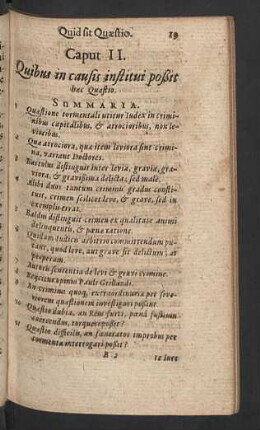 Quid sit Quæstio. 19
Caput II.
Quibus in causis institui possit
hæc Quæstio.
SUMMARIA.
Quæstione tormentali utitur Iudex in crimi-
nibus capitalibus, & atrocioribus, non le-
vioribus.
Quæ atrociora, quæ item leviora sint crimi-
na, variant Doctores.
Bartolus distinguit inter levia, gravia, gra-
viora, & gravissima delicta: sed male.
Alibi duos tantum criminis gradus consti-
tuit, crimen scilicet leve, & grave, sed in
exemplo errat.
Baldus distinguit crimen ex qualitate animi
delinquentis, & pœnæ ratione.
Quidam Iudicis arbitrio committendum pu-
tant, quod leve, aut grave sit delictum: at
perperam.
sententia de levi & gravi crimine.
Pauli Grillandi.
In crimine quoq, extraordinaria per seve-
riorem quæstionem investigari possit?
Quæstio dubia, an Reus furti, pœna fustium
torqueri possit?
Quæstio difficilis, an famosus improbus per
tormenta interrogari possit?
B 2